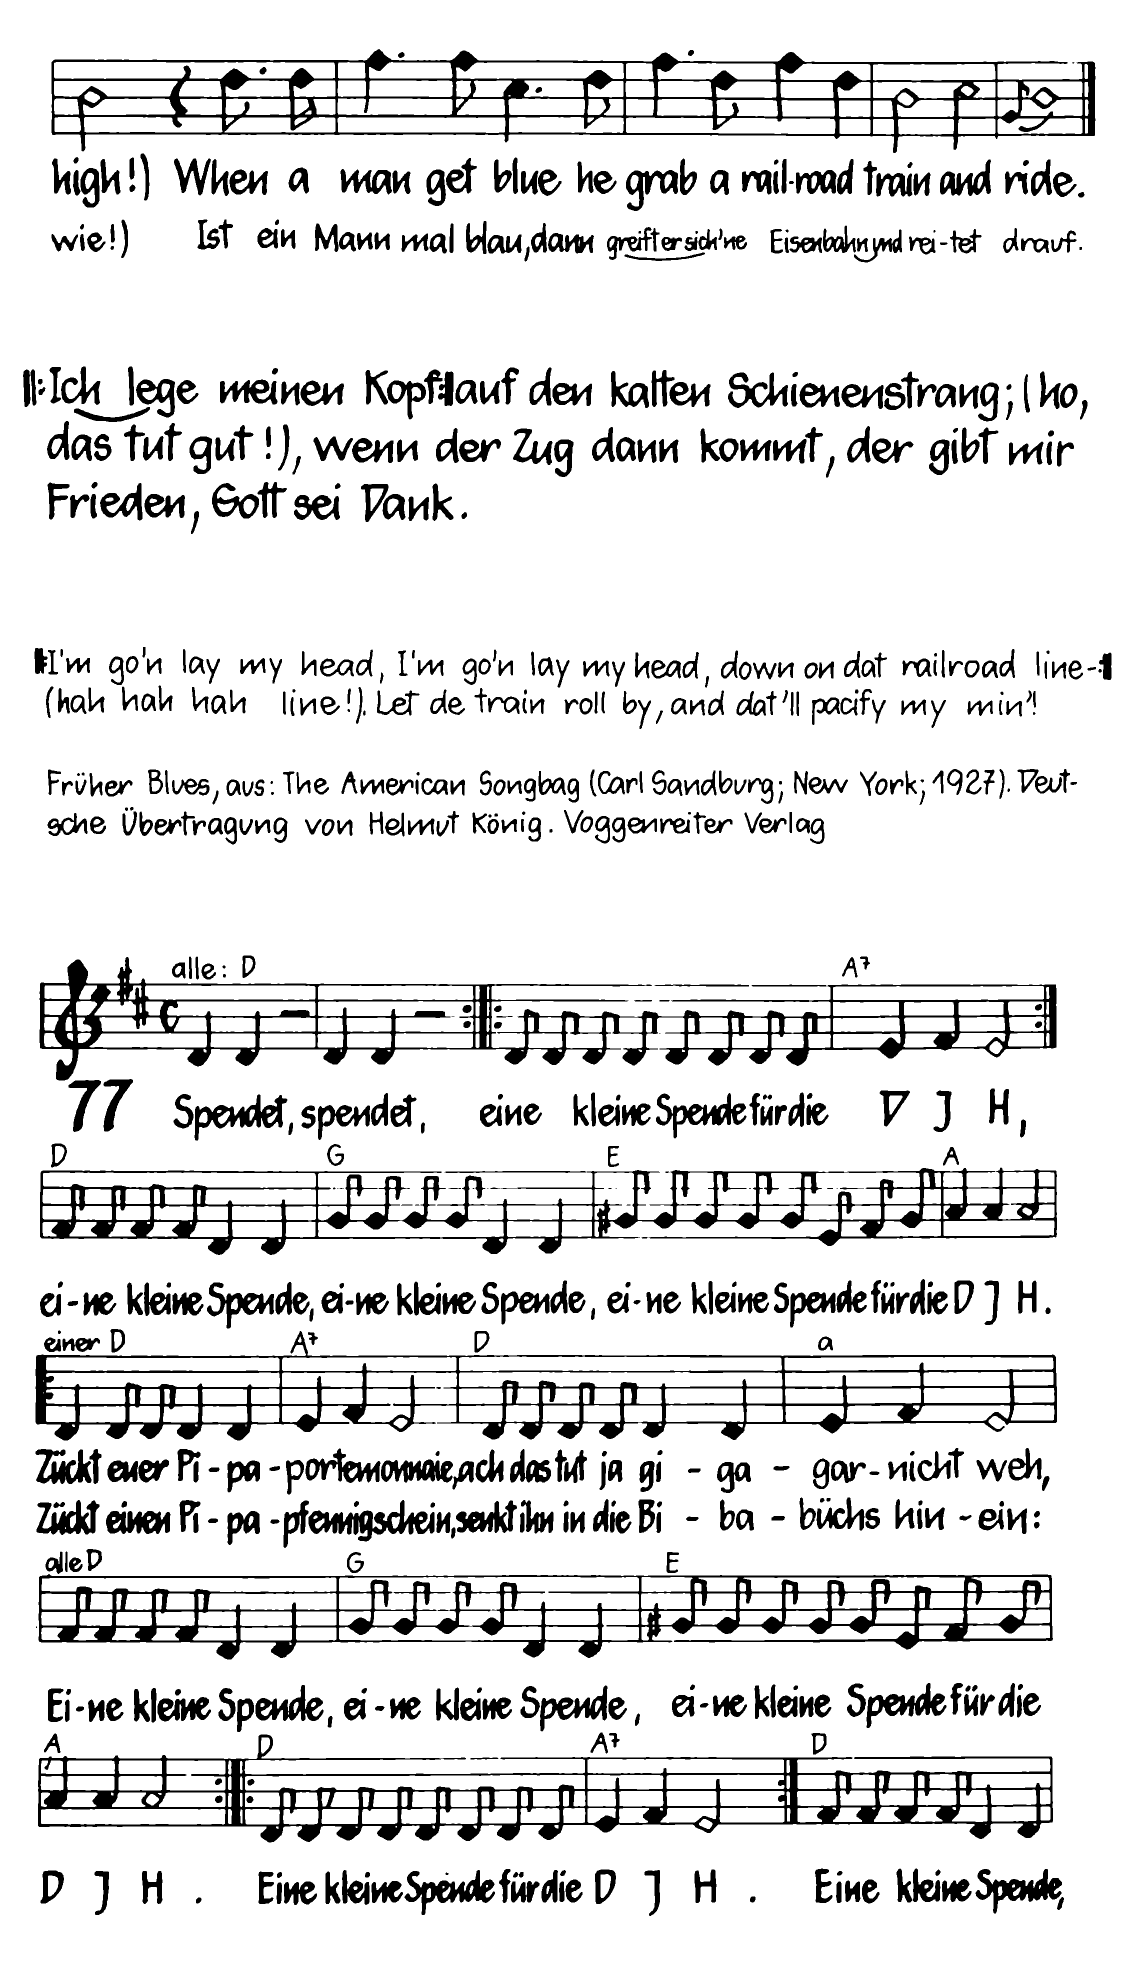 high!) When a man get blue he grab a rail-road train and ride.
wie!) Ist ein Mann mal blau, dann greift er sich 'ne Eisenbahn und rei-tet drauf.
||: Ich lege meinen Kopf :|| auf den kalten Schienenstrang; (ho,
das tut gut!), wenn der Zug dann kommt, der gibt mir
Frieden, Gott sei Dank.
||: I'm go'n lay my head, I'm go'n lay my head, down on dat railroad line- :||
(hah hah hah line!). Let de train roll by, and dat'll pacify my min'!
Früher Blues, aus: The American Songbag (Carl Sandburg; New York; 1927). Deut-
sche Übertragung von Helmut König. Voggenreiter Verlag
alle: D A7
77 Spendet, spendet, eine kleine Spende für die D J H,
D G E A
ei-ne kleine Spende, ei-ne kleine Spende, ei-ne kleine Spende für die D J H.
einer D A7 D a
Zückt euer Pi-pa-portemonnaie, ach das tut ja gi-ga-gar-nicht weh,
Zückt einen Pi-pa-pfennigschein, senkt ihn in die Bi-ba-büchs hin-ein:
alle D G E
Ei-ne kleine Spende, ei-ne kleine Spende, ei-ne kleine Spende für die
A D A7 D
D J H. Eine kleine Spende für die D J H. Eine kleine Spende,